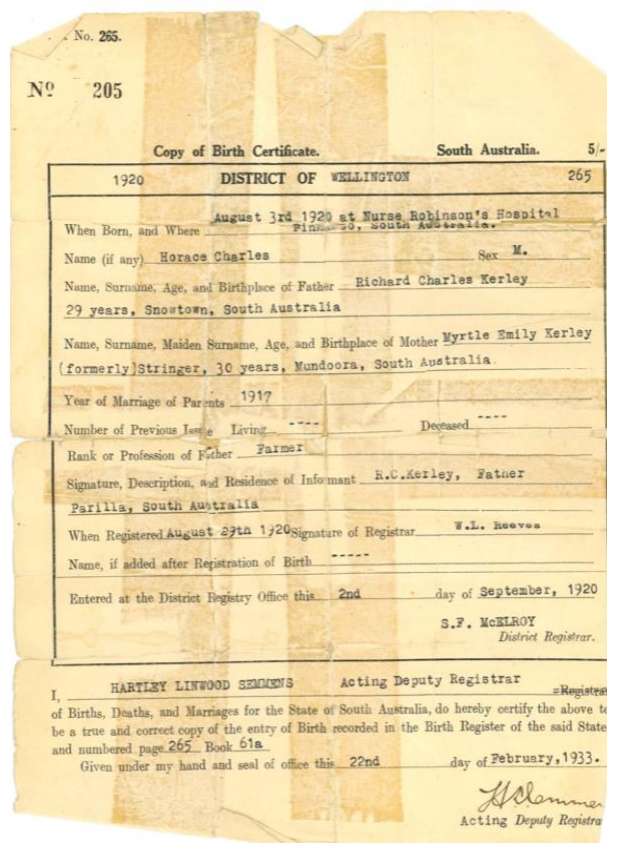 No. 265.
Nº 205
Copy of Birth Certificate. South Australia. 5/-
1920 DISTRICT OF WELLINGTON 265
August 3rd 1920 at Nurse Robinson's Hospital
When Born, and Where South Australia.
Name (if any) Horace Charles Sex M.
Name, Surname, Age, and Birthplace of Father Richard Charles Kerley
29 years, Snowtown, South Australia
Name, Surname, Maiden Surname, Age, and Birthplace of Mother Myrtle Emily Kerley
(formerly)Stringer, 30 years, Mundoora, South Australia
Year of Marriage of Parents 1917
Number of Previous Issue Living ---- Deceased ----
Rank or Profession of Father Farmer
Signature, Description, and Residence of Informant R.C.Kerley, Father
Parilla, South Australia
When Registered August 29th 1920 Signature of Registrar W.L. Reeves
Name, if added after Registration of Birth -----
Entered at the District Registry Office this 2nd day of September, 1920
S.F. McELROY
District Registrar.
I, HARTLEY LINWOOD SEMMENS Acting Deputy Registrar Registra
of Births, Deaths, and Marriages for the State of South Australia, do hereby certify the above to
be a true and correct copy of the entry of Birth recorded in the Birth Register of the said State
and numbered page 265 Book 61a
Given under my hand and seal of office this 22nd day of February,1933.
Acting Deputy Registra